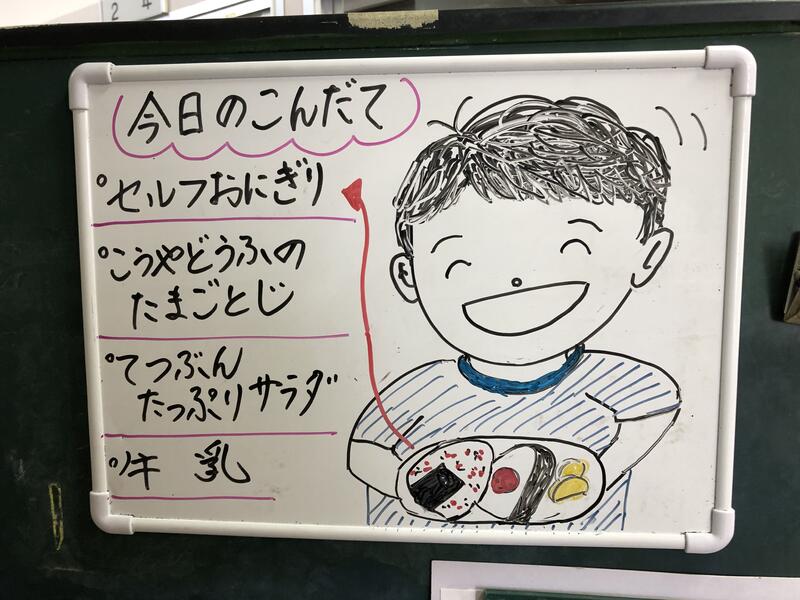 2 4
今日のこんだて
°セルフおにぎり
°こうやどうふの
たまごとじ
°てつぶん
たっぷりサラダ
°牛 乳